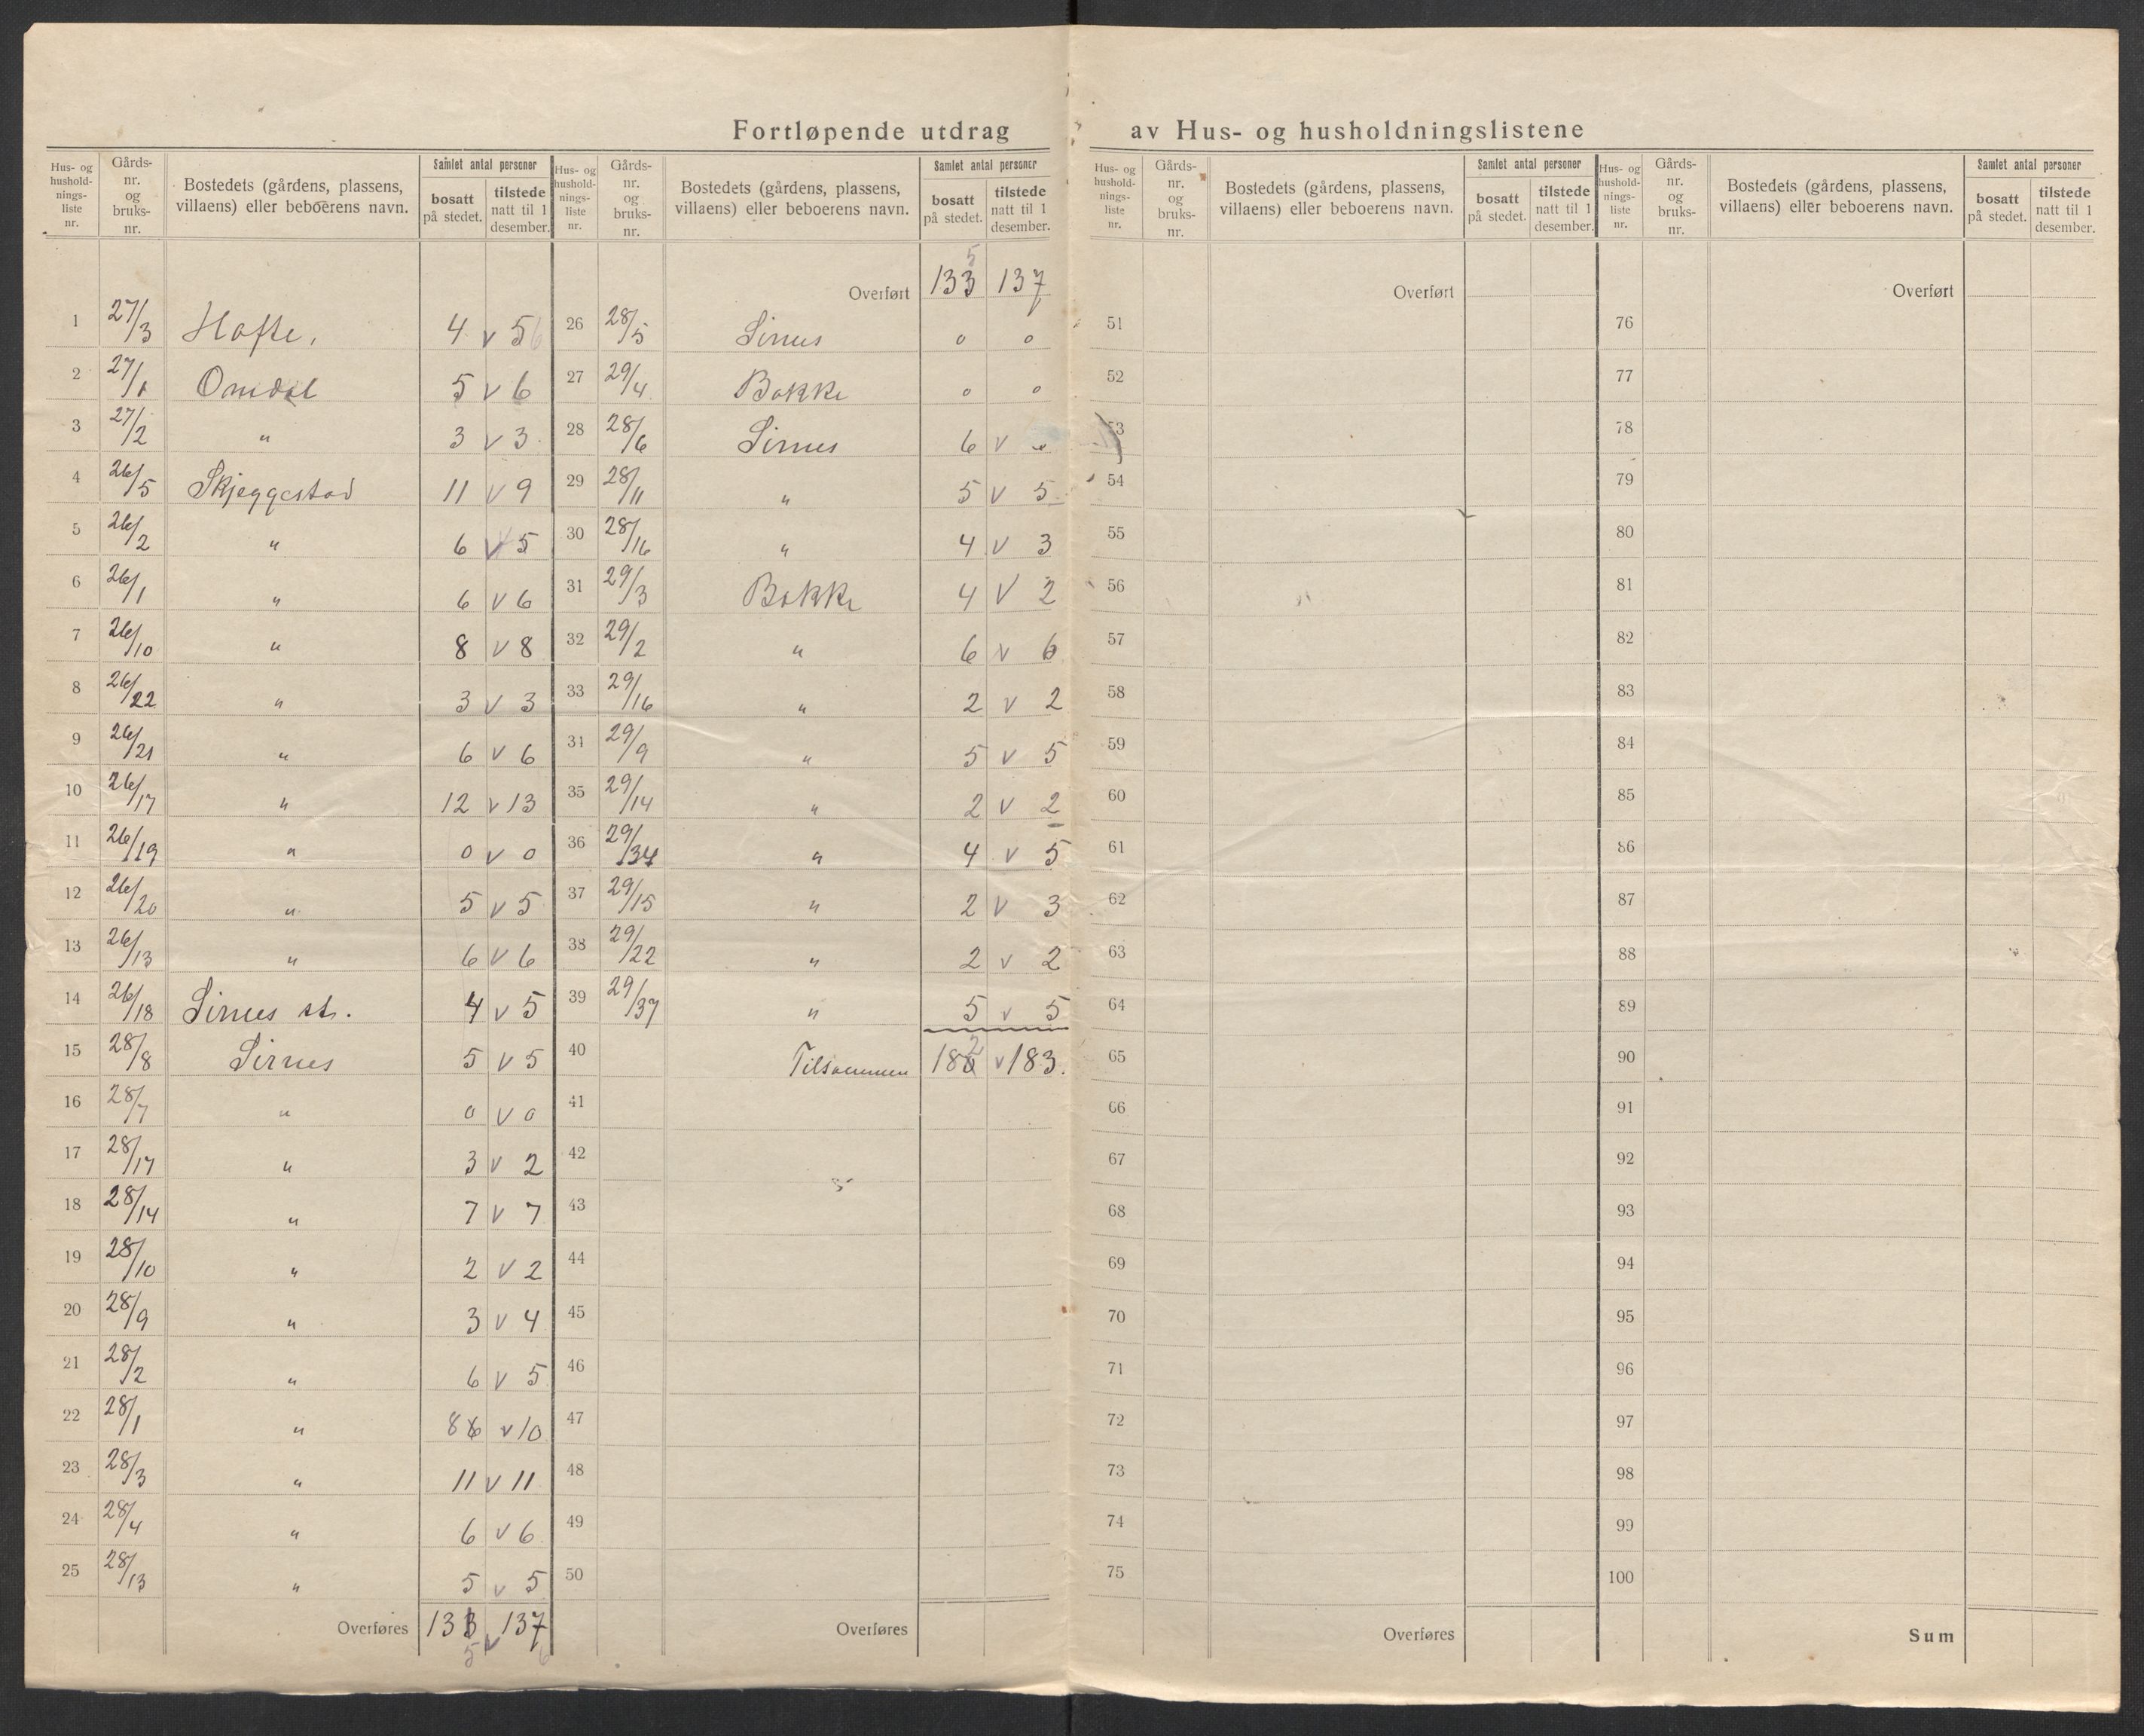 Fortløpende utdrag av Hus- og husholdningslistene
Hus- og husholdnings-liste nr. | Gårds-nr. og bruks-nr. | Bostedets (gårdens, plassens, villaens) eller beboerens navn. | Samlet antal personer | bosatt på stedet. | tilstede natt til 1 desember.
1 27/3 Hafte, 4 v 5
2 27/1 Omdal 5 v 6
3 27/2 " 3 v 3
4 26/5 Skjeggestad 11 v 9
5 26/2 " 6 v 5
6 26/1 " 6 v 6
7 26/10 " 8 v 8
8 26/22 " 3 v 3
9 26/21 " 6 v 6
10 26/17 " 12 v 13
11 26/19 " 0 v 0
12 26/20 " 5 v 5
13 26/13 " 6 v 6
14 26/18 Sirnes st. 4 v 5
15 28/8 Sirnes 5 v 5
16 28/7 " 0 v 0
17 28/17 " 3 v 2
18 28/14 " 7 v 7
19 28/10 " 2 v 2
20 28/9 " 3 v 4
21 28/2 " 6 v 5
22 28/1 " 8 v 10
23 28/3 " 11 v 11
24 28/4 " 6 v 6
25 28/13 " 5 v 5
Overføres 133 v 137
5 6
Hus- og husholdnings-liste nr. | Gårds-nr. og bruks-nr. | Bostedets (gårdens, plassens, villaens) eller beboerens navn. | Samlet antal personer | bosatt på stedet. | tilstede natt til 1 desember.
5
Overført 133 137
26 28/5 Sirnes 0 0
27 29/4 Bakke 0 0
28 28/6 Sirnes 6 v
29 28/11 " 5 v 5
30 28/16 " 4 v 3
31 29/3 Bakke 4 v 2
32 29/2 " 6 v 6
33 29/16 " 2 v 2
34 29/9 " 5 v 5
35 29/14 " 2 v 2
36 29/34 " 4 v 5
37 29/15 " 2 v 3
38 29/22 " 2 v 2
39 29/37 " 5 v 5
40 Tilsammen 180 2 v 183.
41
42
43
44
45
46
47
48
49
50
Overføres
Hus- og husholdnings-liste nr. | Gårds-nr. og bruks-nr. | Bostedets (gårdens, plassens, villaens) eller beboerens navn. | Samlet antal personer | bosatt på stedet. | tilstede natt til 1 desember.
Overført
51
52
53
54
55
56
57
58
59
60
61
62
63
64
65
66
67
68
69
70
71
72
73
74
75
Overføres
Hus- og husholdnings-liste nr. | Gårds-nr. og bruks-nr. | Bostedets (gårdens, plassens, villaens) eller beboerens navn. | Samlet antal personer | bosatt på stedet. | tilstede natt til 1 desember.
Overført
76
77
78
79
80
81
82
83
84
85
86
87
88
89
90
91
92
93
94
95
96
97
98
99
100
Sum